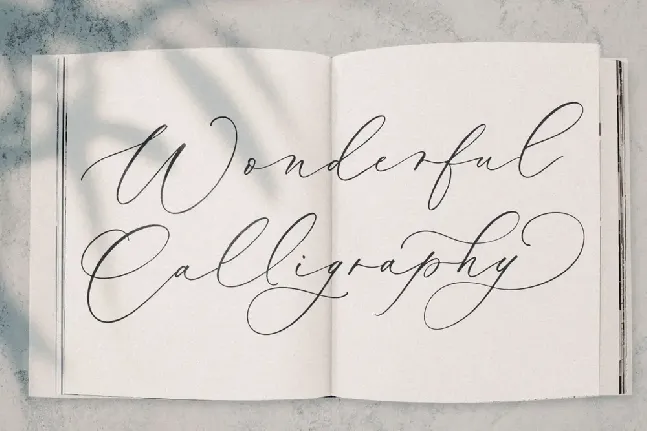 Wonderful
Calligraphy